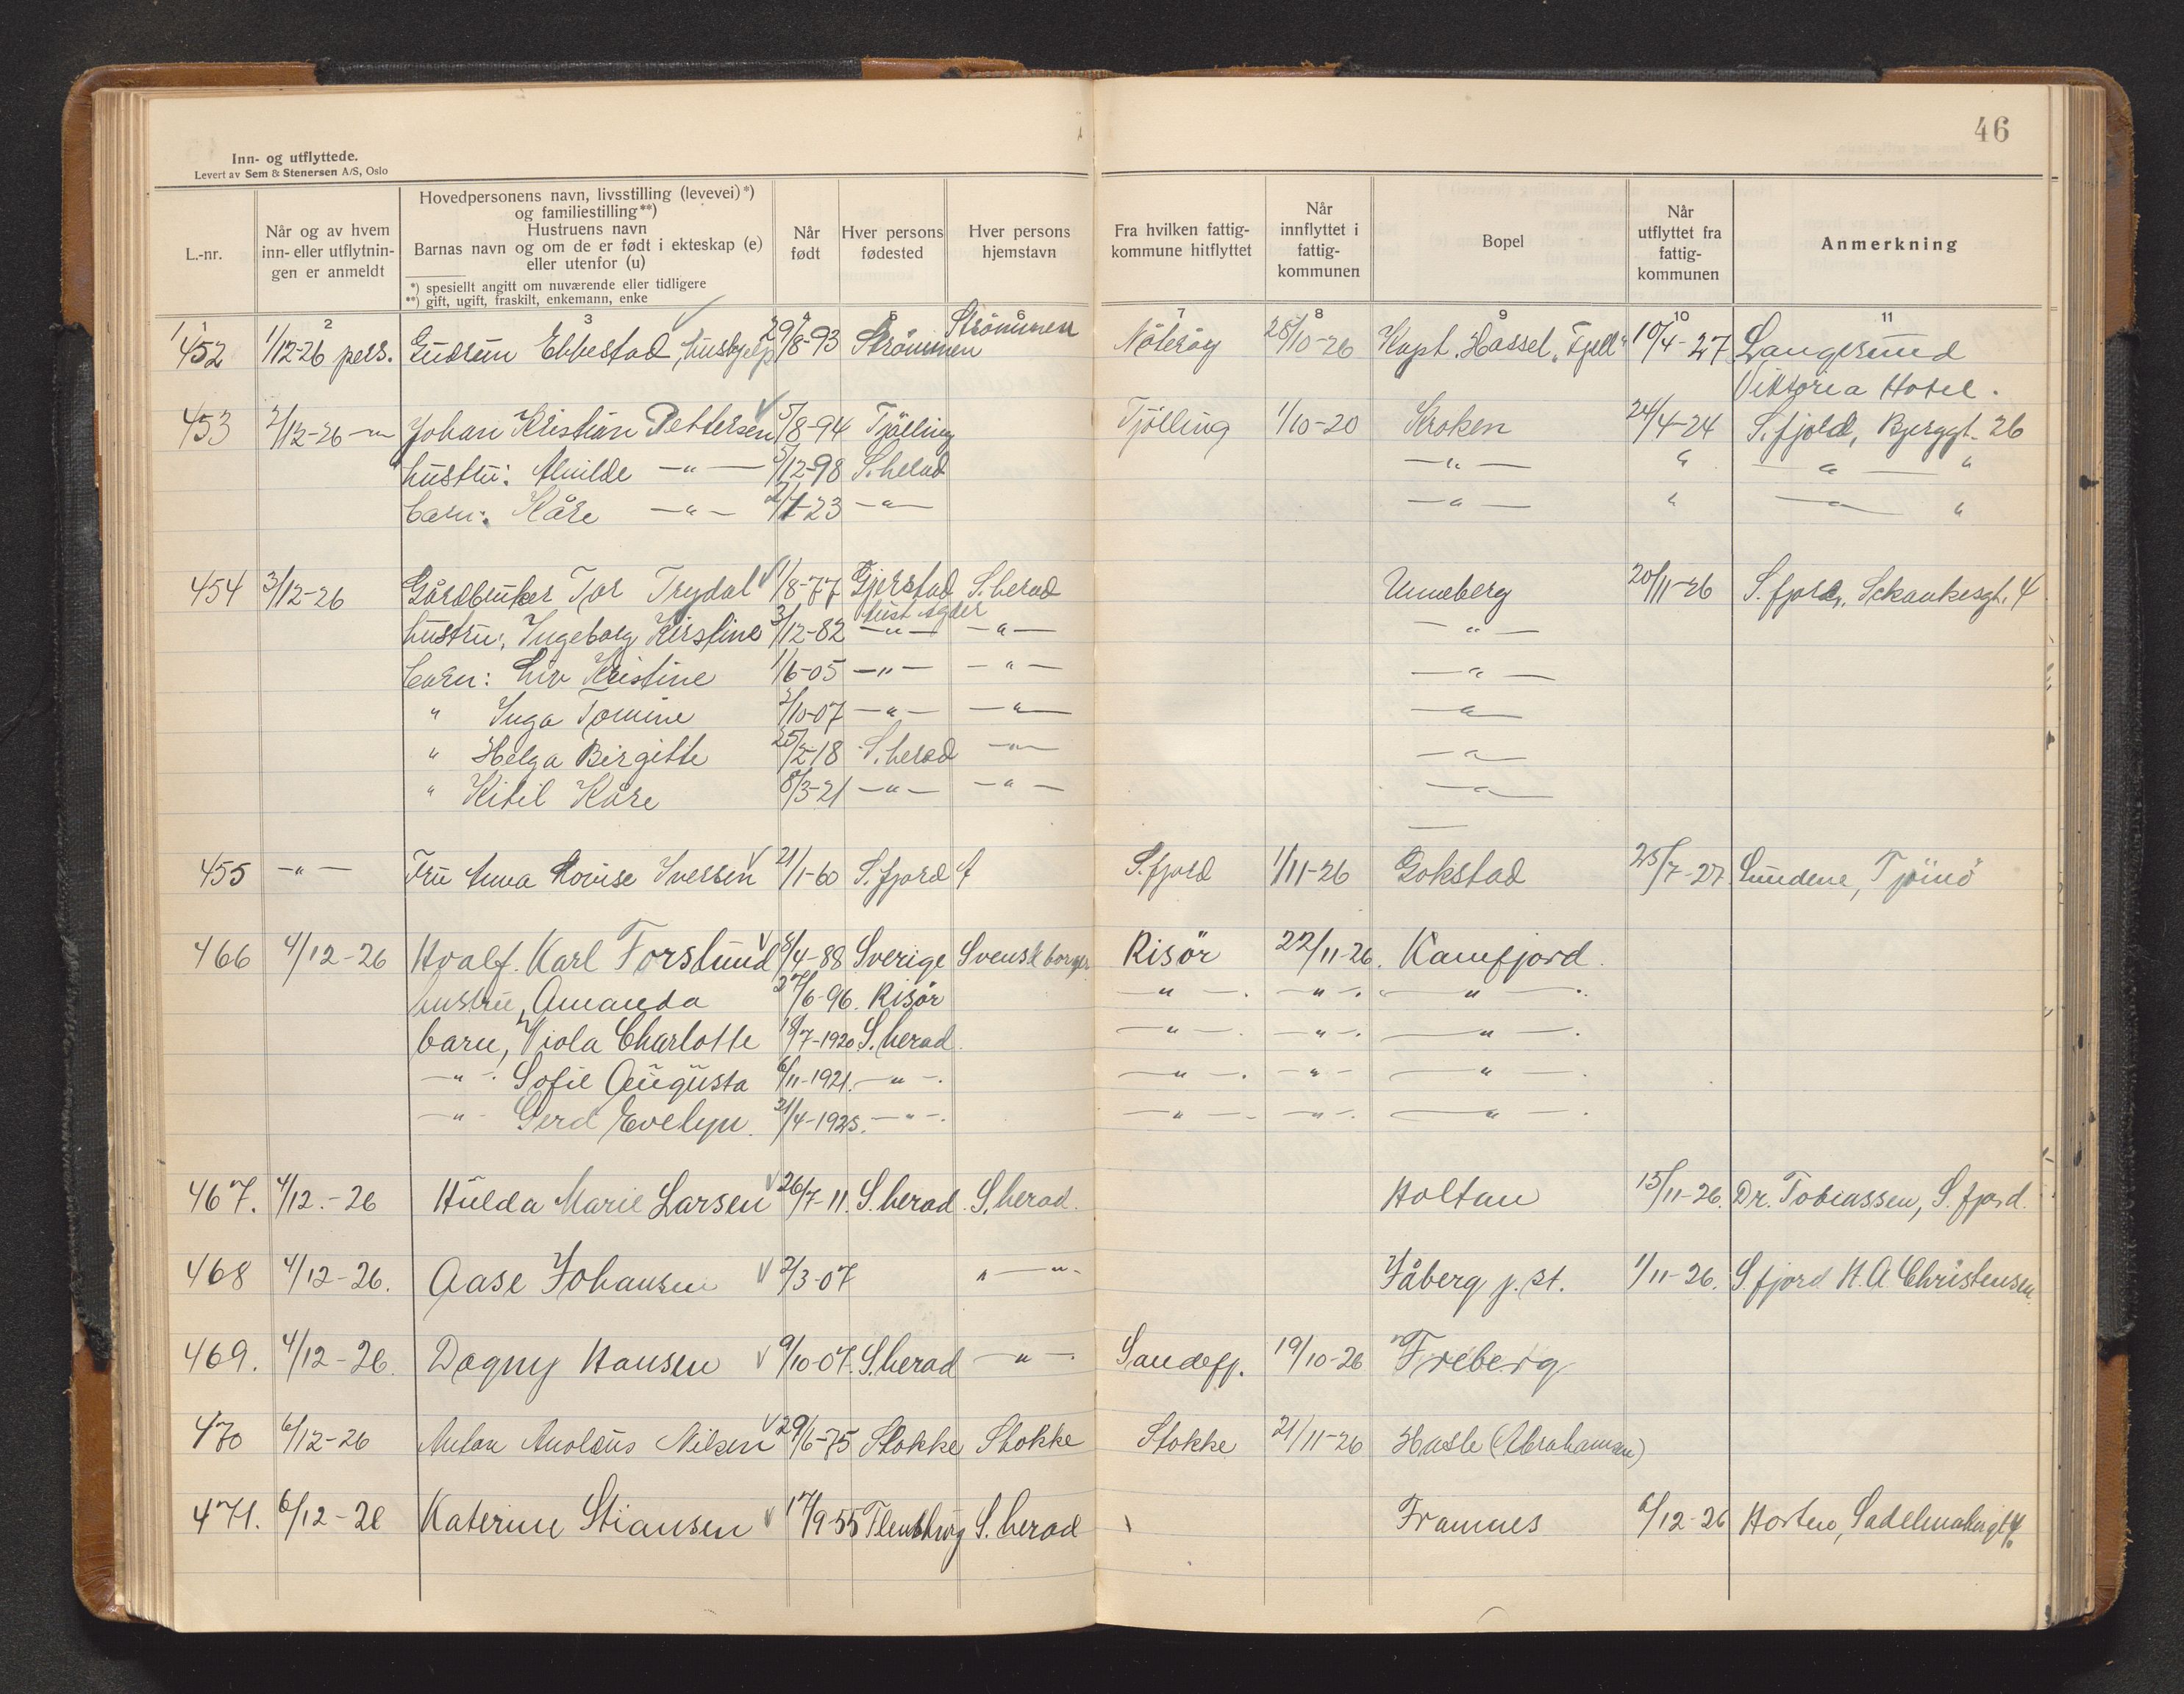 46
Inn- og utflyttede.
Levert av Sem & Stenersen A/S, Oslo
L.-nr.
Når og av hvem inn- eller utflytnin-gen er anmeldt
Hovedpersonens navn, livsstilling (levevei)*)
og familiestilling**)
Hustruens navn
Barnas navn og om de er født i ekteskap (e)
eller utenfor (u)
*) spesiellt angitt om nuværende eller tidligere
**) gift, ugift, fraskilt, enkemann, enke
Når født
Hver persons fødested
Hver persons hjemstavn
Fra hvilken fattig-kommune hitflyttet
Når innflyttet i fattig-kommunen
Bopel
Når utflyttet fra fattig-kommunen
Anmerkning
1 2 3 4 5 6 7 8 9 10 11
Strömmen
452 1/12-26 pers. Gudrun Ebbestad, hushjelp 29/8-93 Strömmen Nöteröy 28/10-26 Kapt. Hassel, "Fjell" 10/4-27 Langesund
Viktoria Hotel.
453 2/12-26 -"- Johan Kristian Pettersen 5/8-94 Tjölling Tjölling 1/10-20 Kroken 24/4-24 S.fjord, Bjerggt. 26
hustru: Alvilde -"- /12-98 S.herad -"- " -"- "
barn: Kåre -"- 2/1-23 -"- -"- " -"- "
454 3/12-26 Gårdbruker Tor Trydal 1/8-77 Gjerstad S.herad Unneberg 20/11-26 S.fjord, Schankesgt. 4
Aust Agder
hustru: Ingeborg Kirstine 3/12-82 -"- -"- -"-
barn: Liv Kristine 1/6-05 -"- -"- -"-
" Inga Tomine /10-07 -"- -"- -"-
" Helga Birgitte 25/2-18 S.herad -"- -"-
" Kitil Kåre 8/3-21 -"- -"- -"-
455 -"- Fru Anna Lovise Iversen 21/1-60 S.fjord S.fjord 1/11-26 Gokstad 25/7-27 Lundene, Tjömö
466 4/12-26 Hvalf. Karl Forslund 8/4-88 Sverige Svensk borger Risör 22/11-26. Kamfjord.
hustru, Amanda 27/6-96. Risör -"-. -"-. -"-.
barn, Viola Charlotte 18/7-1920 S.herad. -"-. -"-. -"-.
-"-. Sofie Augusta 6/11-1921. -"-. -"-. -"- -"-.
-"- Gerd Evelyn. 21/4-1925. -"-. -"-. -"-. -"-.
467. 4/12.-26 Hulda Marie Larsen 26/7-11. S.herad. S.herad. Holtan 15/11-26. Dr. Tobiassen, S.fjord.
468 4/12-26. Aase Johansen 2/3-07 -"- Jåberg j.st. 1/11-26. S.fjord H.A. Christensen.
469. 4/12-26. Dagny Hansen 9/10-07. S.herad -"-. Sandefj. 19/10-26 Freberg
470 6/12-26 Anton Anoleus Nilsen 29/6-75 Stokke Stokke Stokke 21/11-26 Hasle (Abrahamsen)
471. 6/12-26 Katerine Stiansen 17/9-55 Flensburg S.herad Framnes 6/12-26 Horten, Sadelmakergt. 4.